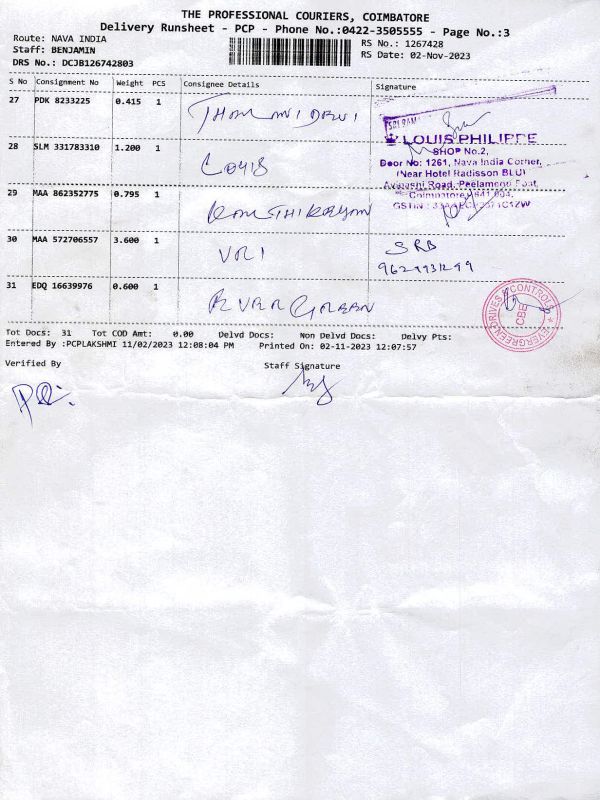 THE PROFESSIONAL COURIERS, COIMBATORE
Delivery Runsheet - PCP - Phone No.:0422-3505555 - Page No.:3
Route: NAVA INDIA
RS No.: 1267428
Staff: BENJAMIN
RS Date: 02-Nov-2023
DRS No.: DCJB126742803
S No Consignment No Weight PCS Consignee Details Signature
27 PDK 8233225 0.415 1
SRI RAM
LOUIS PHILIPPE
28 SLM 331783310 1.200 1 LOUIS
SHOP No.2,
Door No: 1261, Nava India Corner,
(Near Hotel Radisson BLU)
Avinashi Road, Peelamedu Post,
29 MAA 862352775 0.795 1
Coimbatore 641 004.
GSTIN :
30 MAA 572706557 3.600 1 SRB
31 EDQ 16639976 0.600 1
EVERGREEN DRIVES & CONTROLS
CBE
Tot Docs: 31 Tot COD Amt: 0.00 Delvd Docs: Non Delvd Docs: Delvy Pts:
Entered By :PCPLAKSHMI 11/02/2023 12:08:04 PM Printed On: 02-11-2023 12:07:57
Verified By Staff Signature